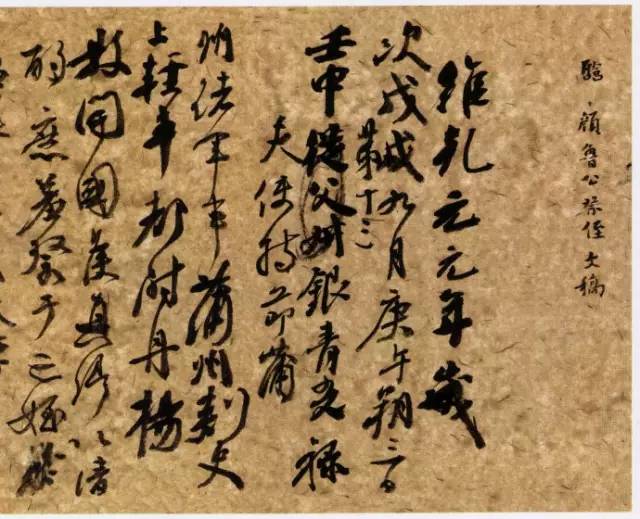 臨顏魯公祭侄文稿
維乾元元年歲
次戊戌九月庚午朔三日
第十三
壬申從父叔銀青光祿
夫使持節蒲
州諸軍事蒲州刺史
上輕車都尉丹楊
縣開國侯真卿以清
酌庶羞祭于亡姪贈